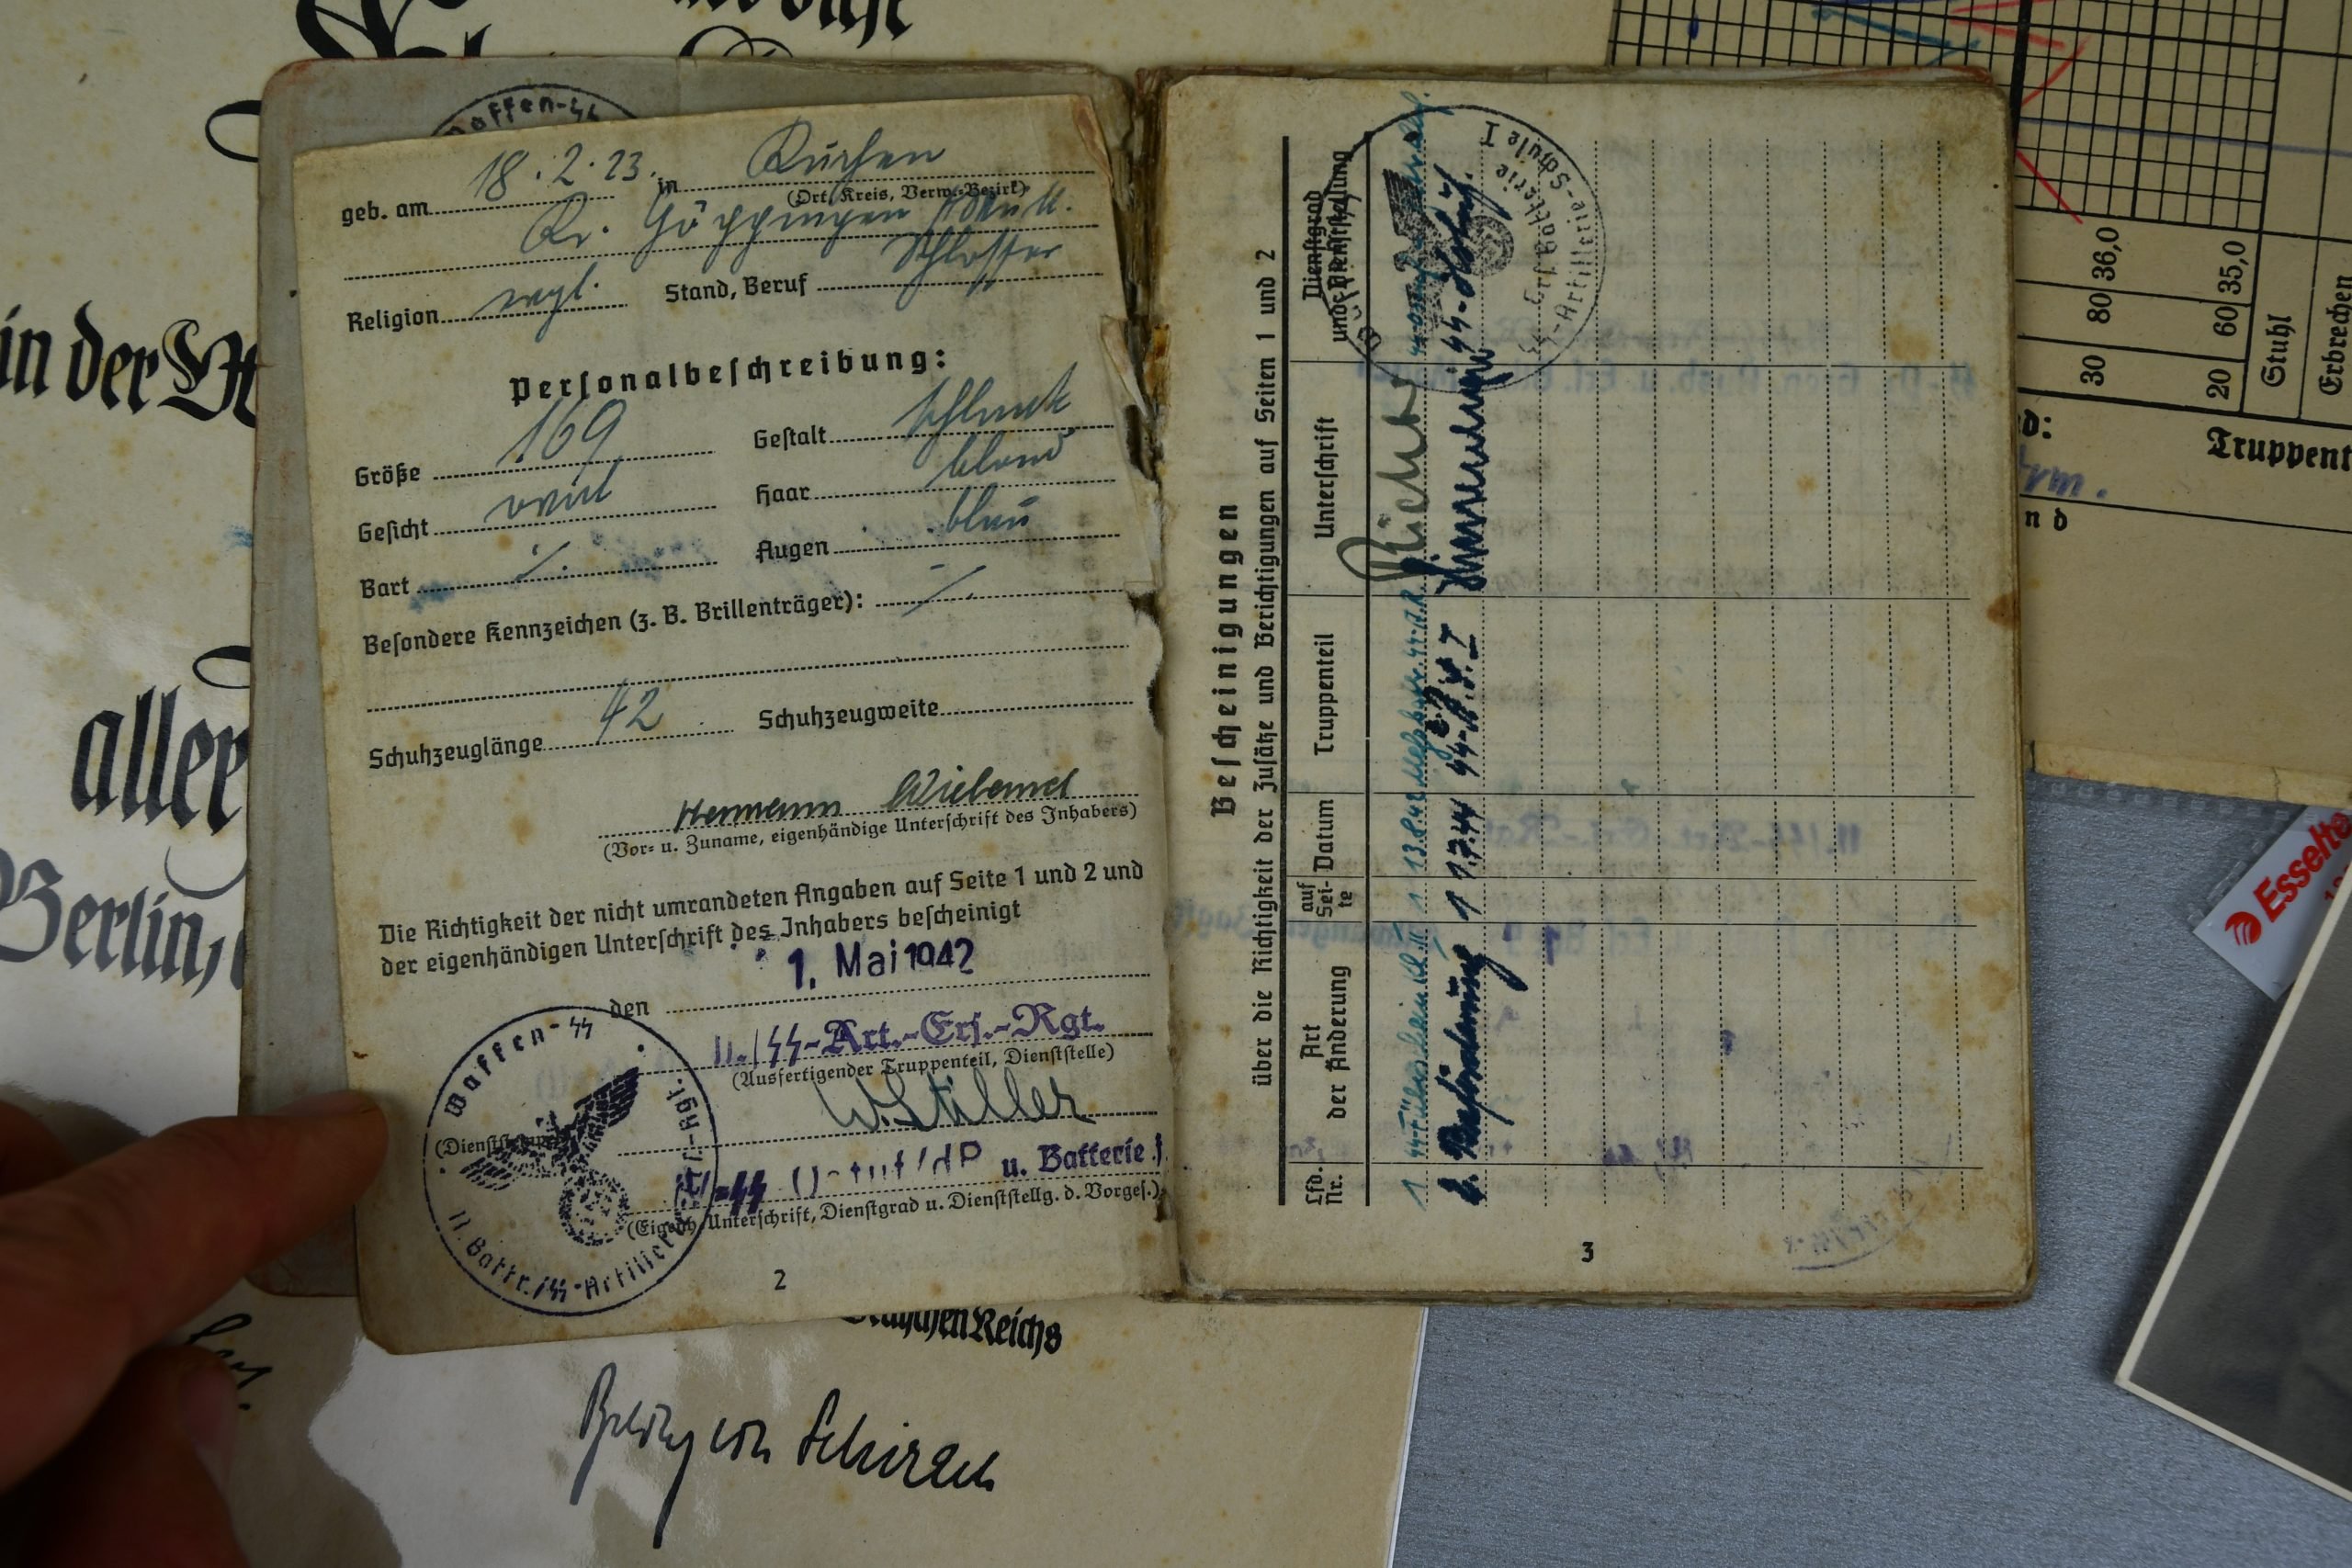 Waffen-SS
geb. am 18.2.23. in Kuchen
(Ort, Kreis, Verw.-Bezirk)
Kr. Göppingen
Religion evgl. Stand, Beruf Schlosser
Personalbeschreibung:
Größe 169 Gestalt schlank
Gesicht oval Haar blond
Bart ·/. Augen blau
Besondere Kennzeichen (z. B. Brillenträger): ·/.
Schuhzeuglänge 42 Schuhzeugweite
Hermann Wieland
(Vor- u. Zuname, eigenhändige Unterschrift des Inhabers)
Die Richtigkeit der nicht umrandeten Angaben auf Seite 1 und 2 und
der eigenhändigen Unterschrift des Inhabers bescheinigt
den 1. Mai 1942
11./SS-Art.-Ers.-Rgt.
(Ausfertigender Truppenteil, Dienststelle)
W. Stiller
u. Batterie
(Eigenh. Unterschrift, Dienstgrad u. Dienststellg. d. Vorges.)
(Dienststempel)
Waffen-SS
11. Battr./SS-Artillerie
2
Bescheinigungen
über die Richtigkeit der Zusätze und Berichtigungen auf Seiten 1 und 2
Lfd. Nr. Art der Änderung auf Seite Datum Truppenteil Unterschrift Dienstgrad und Dienststellung
1 1 13.8.42 Richter
2. Beförderung 1 1.7.44 SS-A.S. I
SS-Artillerie-Schule I
3
in der
aller
Berlin,
Deutschen Reichs
Baldur von Schirach
30 80 36,0
20 60 35,0
Stuhl
Erbrechen
Truppent
nd
Esselte